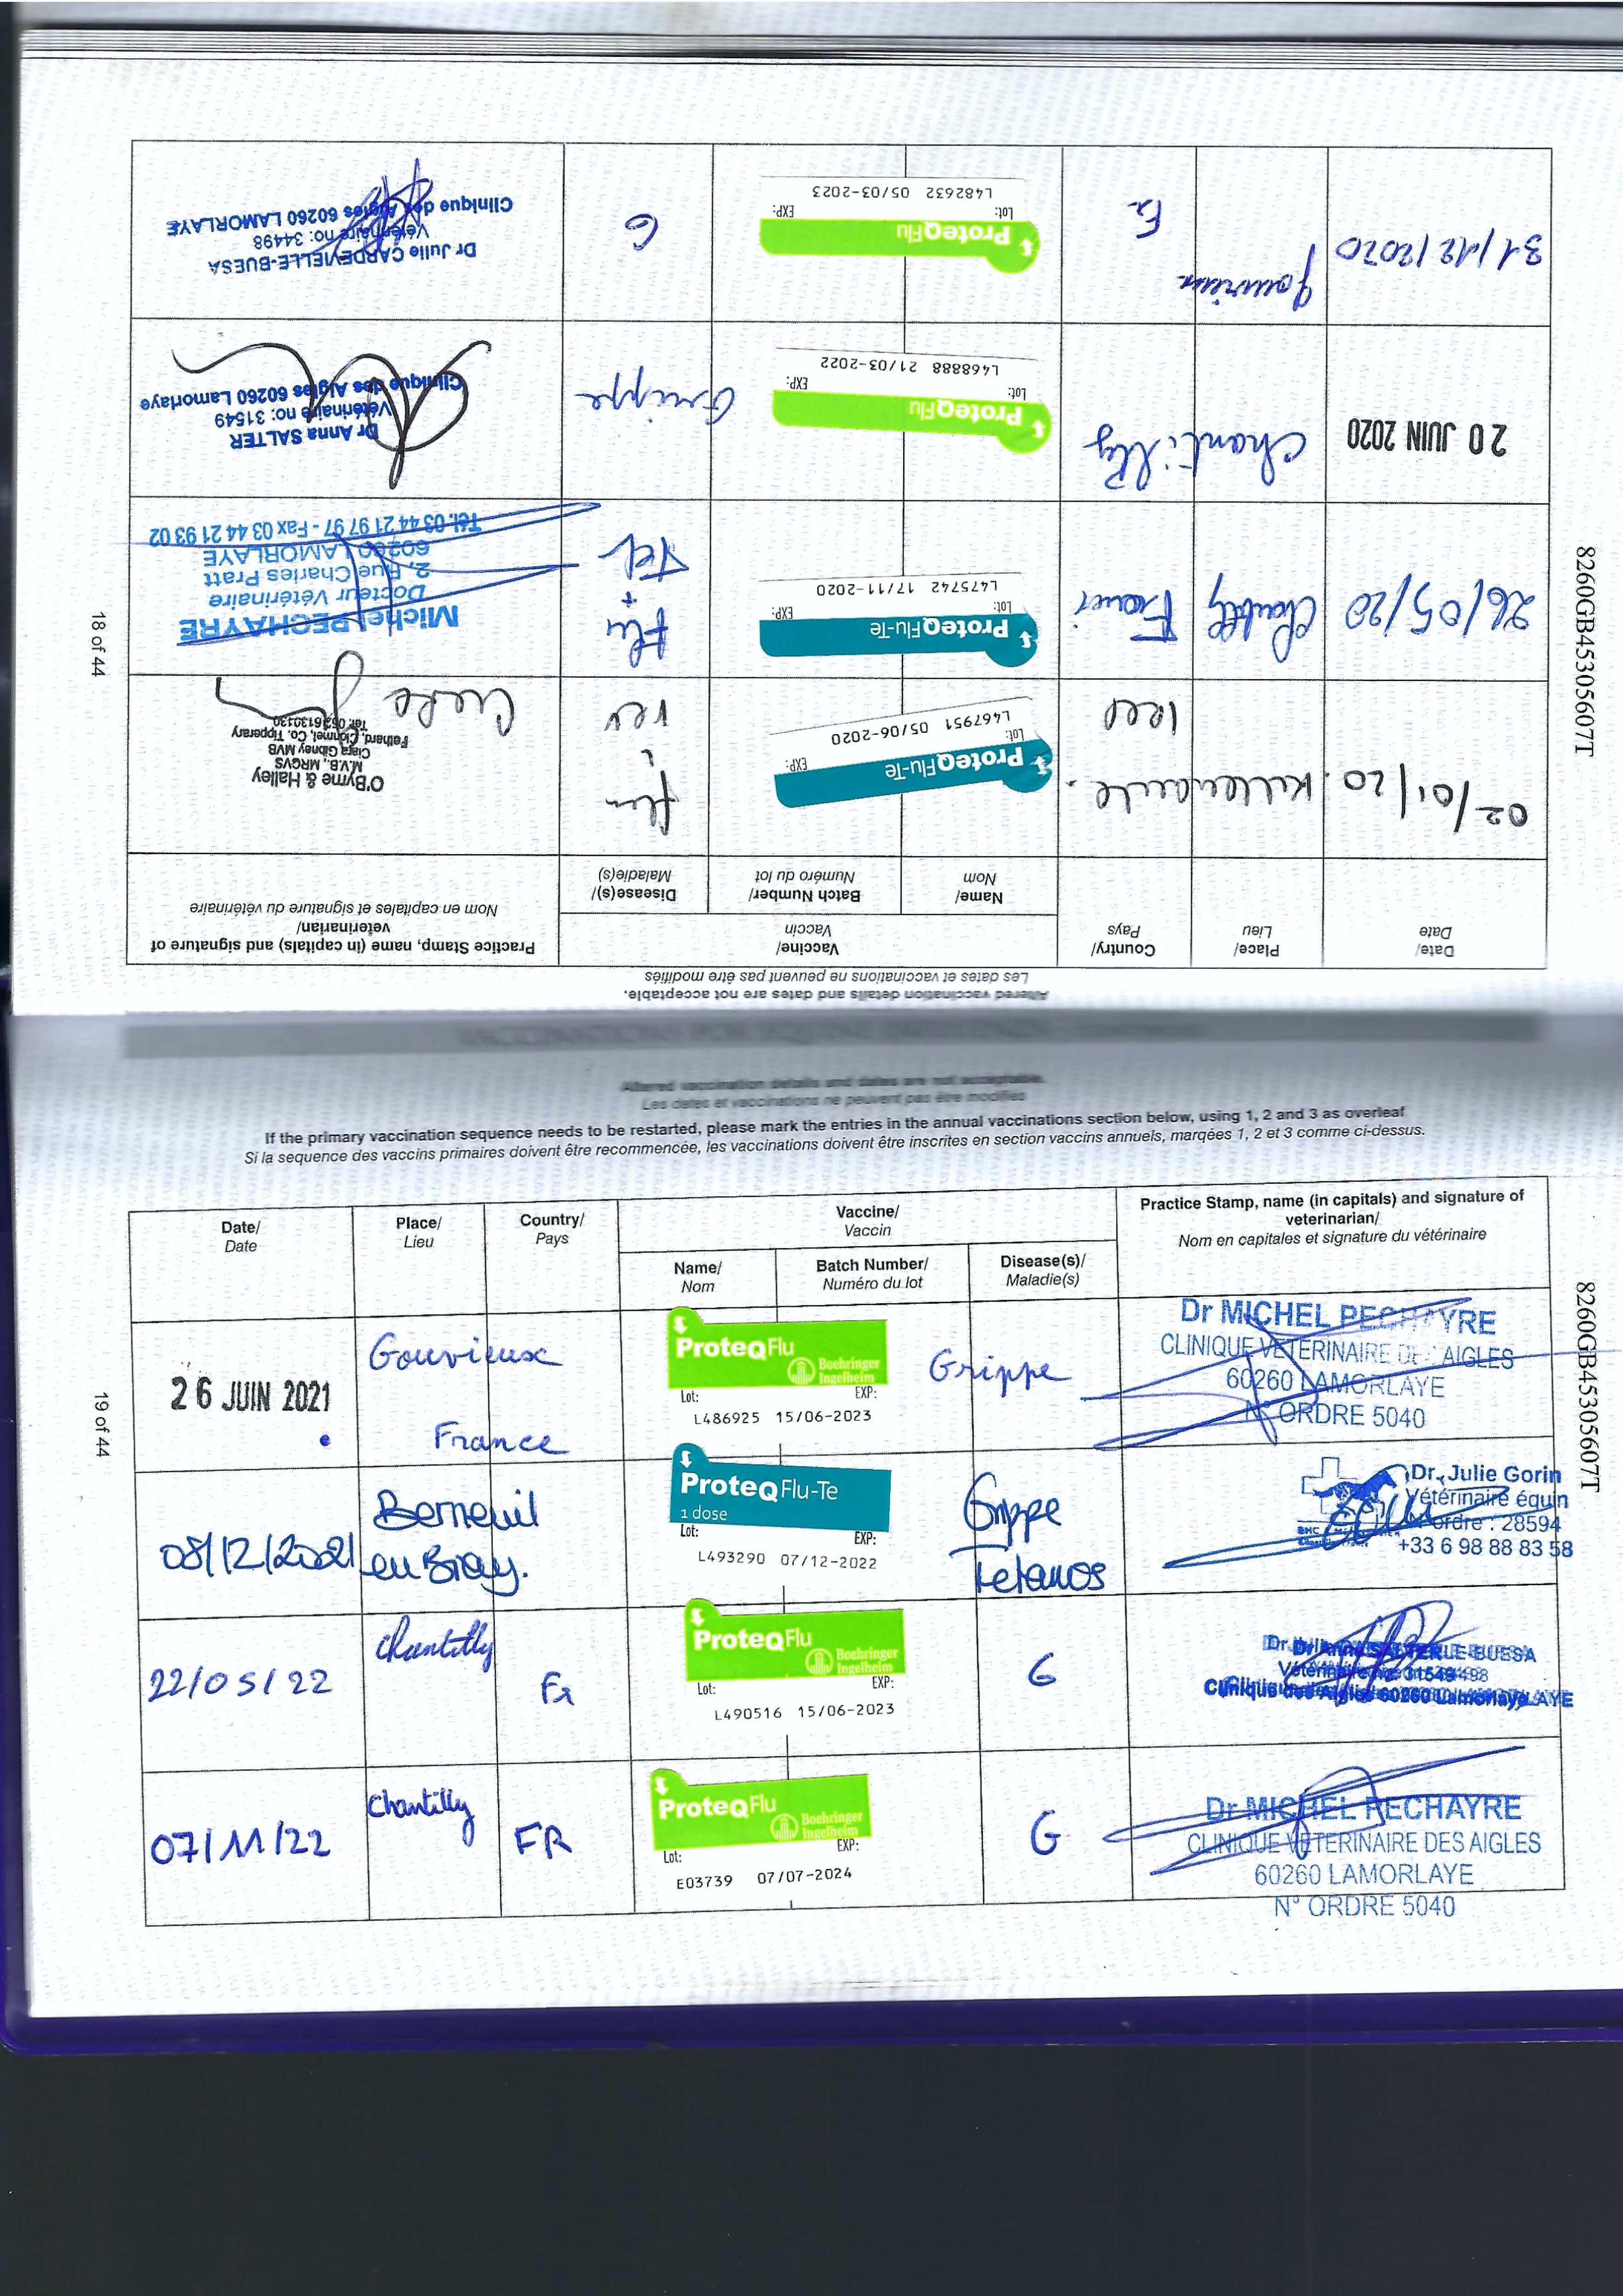 Altered vaccination details and dates are not acceptable.
Les dates et vaccinations ne peuvent pas être modifiés
Date/
Date
Place/
Lieu
Country/
Pays
Vaccine/
Vaccin
Name/
Nom
Batch Number/
Numéro du lot
Disease(s)/
Maladie(s)
Practice Stamp, name (in capitals) and signature of
veterinarian/
Nom en capitales et signature du vétérinaire
02/01/20
Killenaule.
ProteqFlu-Te
Lot: EXP:
L467951 05/06-2020
O'Byrne & Halley
M.V.B., MRCVS
Ciara Gibney MVB
Fethard, Clonmel, Co. Tipperary
26/05/20
Chantilly
France
ProteqFlu-Te
Lot: EXP:
L475742 17/11-2020
Flu
+
Tet
Michel PECHAYRE
Docteur Vétérinaire
2, Rue Charles Pratt
60260 LAMORLAYE
Tél. 03 44 21 97 97 - Fax 03 44 21 93 02
20 JUIN 2020
Chantilly
ProteqFlu
Lot: EXP:
L468888 21/03-2022
Grippe
Dr Anna SALTER
Vétérinaire no: 31549
Clinique des Aigles 60260 Lamorlaye
31/12/2020
Gouvieux
Fr
ProteqFlu
Lot: EXP:
L482632 05/03-2023
G
Dr Julie CARDEVIELLE-BUESA
Vétérinaire no: 34498
Clinique des Aigles 60260 LAMORLAYE
18 of 44
8260GB45305607T
Altered vaccination details and dates are not acceptable.
Les dates et vaccinations ne peuvent pas être modifiés
If the primary vaccination sequence needs to be restarted, please mark the entries in the annual vaccinations section below, using 1, 2 and 3 as overleaf
Si la sequence des vaccins primaires doivent être recommencée, les vaccinations doivent être inscrites en section vaccins annuels, marqées 1, 2 et 3 comme ci-dessus.
Date/
Date
Place/
Lieu
Country/
Pays
Vaccine/
Vaccin
Name/
Nom
Batch Number/
Numéro du lot
Disease(s)/
Maladie(s)
Practice Stamp, name (in capitals) and signature of
veterinarian/
Nom en capitales et signature du vétérinaire
26 JUIN 2021
Gouvieux
France
ProteqFlu
Boehringer
Ingelheim
Lot: EXP:
L486925 15/06-2023
Grippe
Dr MICHEL PECHAYRE
CLINIQUE VETERINAIRE DES AIGLES
60260 LAMORLAYE
N° ORDRE 5040
08/12/2021
Berneuil
en Bray.
ProteqFlu-Te
1 dose
Lot: EXP:
L493290 07/12-2022
Grippe
Tetanos
Dr. Julie Gorin
Vétérinaire équin
N° ordre : 28594
+33 6 98 88 83 58
22/05/22
Chantilly
Fr
ProteqFlu
Boehringer
Ingelheim
Lot: EXP:
L490516 15/06-2023
G
Dr Anna SALTER
Vétérinaire no: 31549
Clinique des Aigles 60260 Lamorlaye
07/11/22
Chantilly
FR
ProteqFlu
Boehringer
Ingelheim
Lot: EXP:
E03739 07/07-2024
G
Dr MICHEL PECHAYRE
CLINIQUE VETERINAIRE DES AIGLES
60260 LAMORLAYE
N° ORDRE 5040
19 of 44
8260GB45305607T